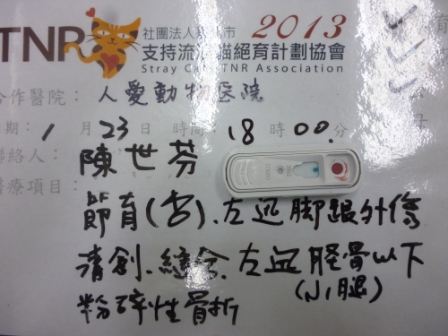 TNR 社團法人 市 2013
支持流浪貓絕育計劃協會
Stray Cat TNR Association
合作醫院： 人愛動物医院
期： 1 月 23 日 時間： 18 時 00 分
聯絡人： 陳世芬
醫療項目：
節育(公)、左近脚跟外傷
清創、縫合、左近脛骨以下
(小腿)
粉碎性骨折